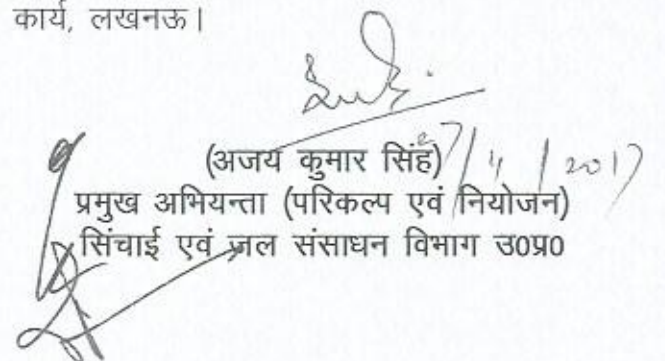 कार्य, लखनऊ।
(अजय कुमार सिंह)
27/4/2017
प्रमुख अभियन्ता (परिकल्प एवं नियोजन)
सिंचाई एवं जल संसाधन विभाग उ0प्र0